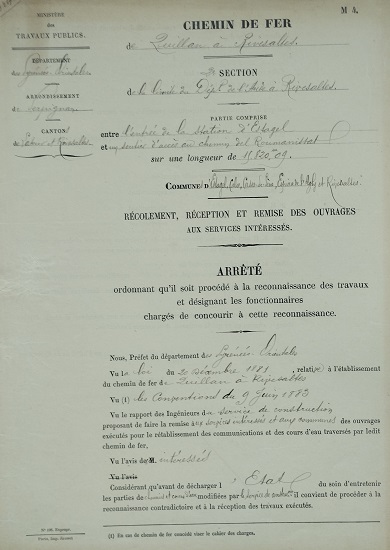 MINISTÈRE
des
TRAVAUX PUBLICS.
DÉPARTEMENT
des Pyrénées Orientales
ARRONDISSEMENT
de Perpignan
CANTON
M 4.
CHEMIN DE FER
de Quillan à Rivesaltes.
SECTION
de la limite du Dépt de l'Aude à Rivesaltes
PARTIE COMPRISE
entre l'entrée de la station d'Estagel
et un sentier d'accès au chemin del Roumanissat
sur une longueur de 11.820m09.
COMMUNE d'Estagel, Calce, Cases de Pène, Espira de l'Agly et Rivesaltes.
RÉCOLEMENT, RÉCEPTION ET REMISE DES OUVRAGES
AUX SERVICES INTÉRESSÉS.
ARRÊTÉ
ordonnant qu'il soit procédé à la reconnaissance des travaux
et désignant les fonctionnaires
chargés de concourir à cette reconnaissance.
Nous, Préfet du département des Pyrénées Orientales
Vu la loi du 20 décembre 1881, relative à l'établissement
du chemin de fer de Quillan à Rivesaltes
Vu (1) les Conventions du 9 Juin 1883
Vu le rapport des Ingénieurs du service de construction
proposant de faire la remise aux services intéressés et aux communes des ouvrages
exécutés pour le rétablissement des communications et des cours d'eau traversés par ledit
chemin de fer,
Vu l'avis de M. intéressés
Vu l'avis
Considérant qu'avant de décharger l'Etat du soin d'entretenir
les parties de modifiées par il convient de procéder à la
reconnaissance contradictoire et à la réception des travaux exécutés.
(1) En cas de chemin de fer concédé viser le cahier des charges.